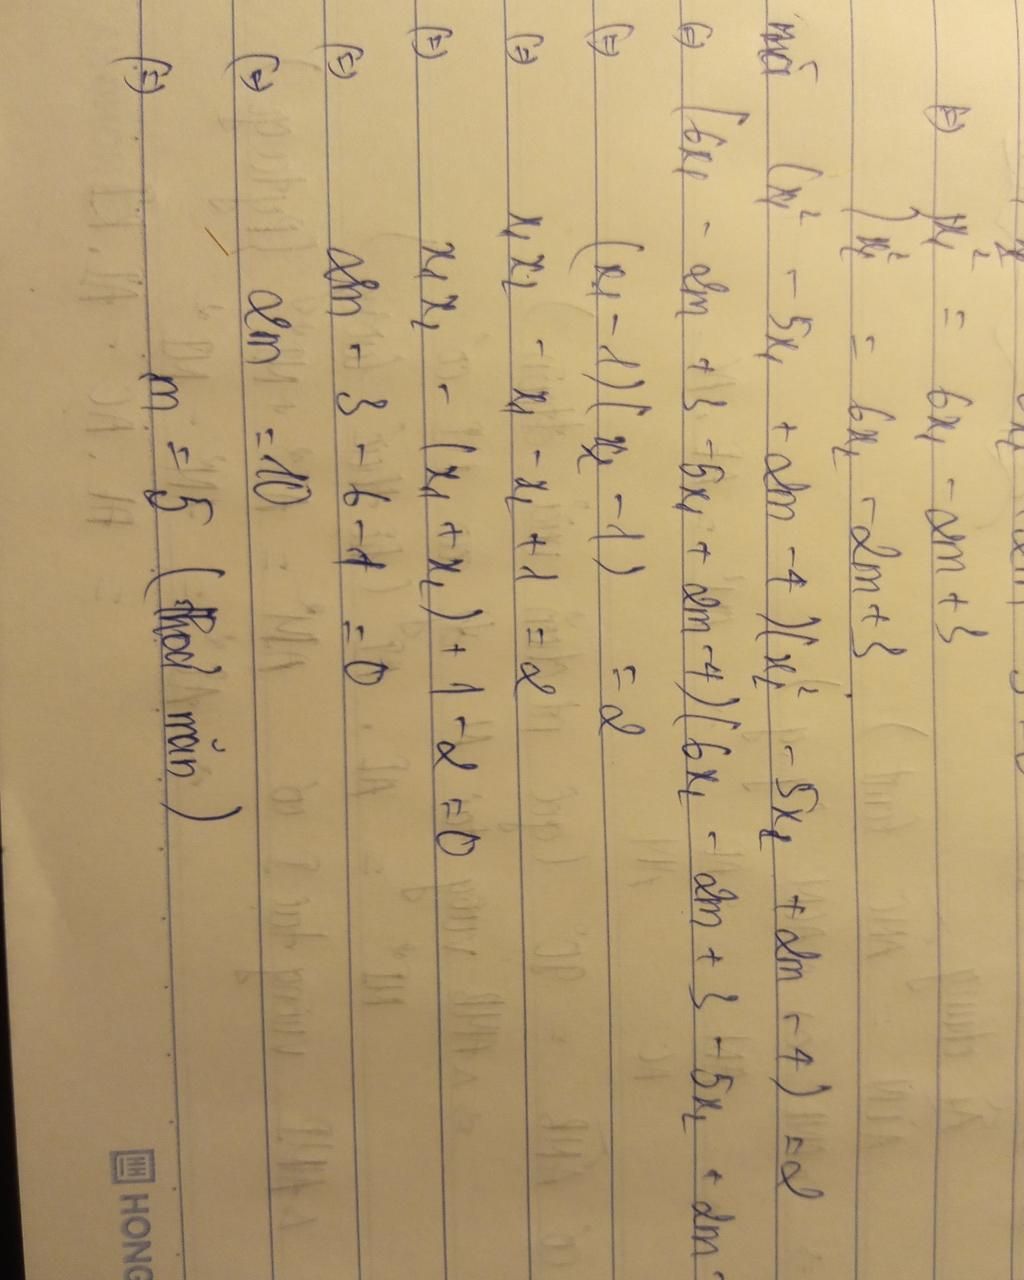 (=) x₁² = 6x₁ - 2m + 3
x₂² = 6x₂ - 2m + 3
mà (x₁² - 5x₁ + 2m - 4)(x₂² - 5x₂ + 2m - 4) = 2
(=) (6x₁ - 2m + 3 - 5x₁ + 2m - 4)(6x₂ - 2m + 3 - 5x₂ + 2m -
(=) (x₁ - 1)(x₂ - 1) = 2
(=) x₁x₂ - x₁ - x₂ + 1 = 2
(=) x₁x₂ - (x₁ + x₂) + 1 - 2 = 0
(=) 2m - 3 - 6 - 1 = 0
(=) 2m = 10
(=) m = 5 (thoả mãn)
HONG